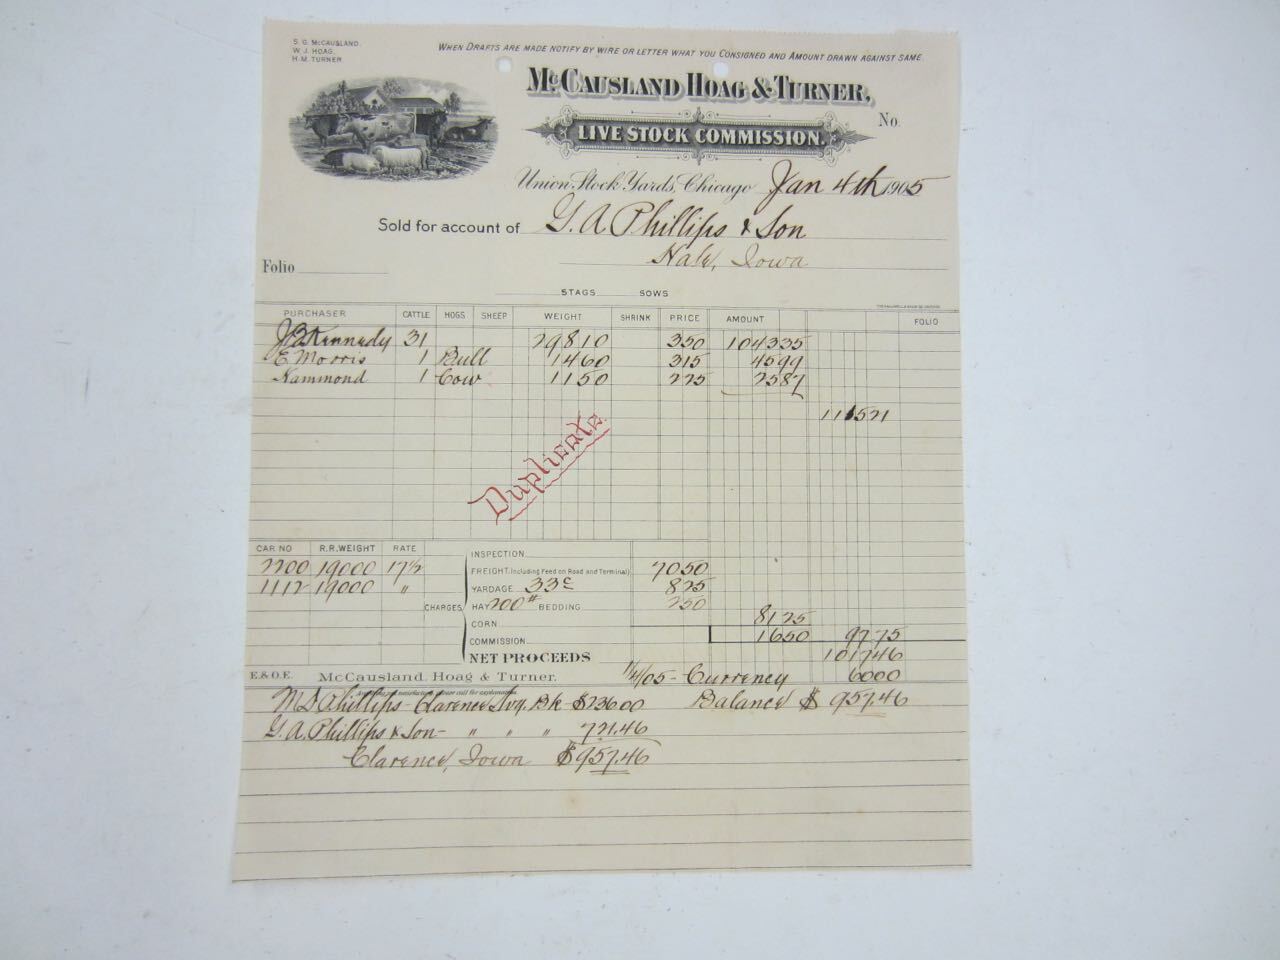 S. G. McCAUSLAND.
W. J. HOAG.
H. M. TURNER.
WHEN DRAFTS ARE MADE NOTIFY BY WIRE OR LETTER WHAT YOU CONSIGNED AND AMOUNT DRAWN AGAINST SAME.
McCAUSLAND HOAG & TURNER,
LIVE STOCK COMMISSION.
No.
Union Stock Yards, Chicago Jan 4th 1905
Sold for account of G. A Phillips & Son
Hale, Iowa
Folio
STAGS SOWS
PURCHASER CATTLE HOGS SHEEP WEIGHT SHRINK PRICE AMOUNT FOLIO
Kennedy 31 29810 350 104335
E Morris 1 Bull 1460 315 4599
Hammond 1 Cow 1150 225 2587
111521
Duplicate.
CAR NO R.R. WEIGHT RATE INSPECTION
2200 19000 17½ FREIGHT (Including Feed on Road and Terminal) 7050
1112 19000 " YARDAGE 33¢ 825
CHARGES HAY 200# BEDDING 250
CORN 8125
COMMISSION 1650 9775
NET PROCEEDS 101746
E. & O. E. McCausland, Hoag & Turner. 1/4/05 - Currency 6000
Phillips - Clarence Svg. Bk $236.00 Balance $ 957.46
G. A. Phillips & Son - " " " 721.46
Clarence, Iowa $957.46